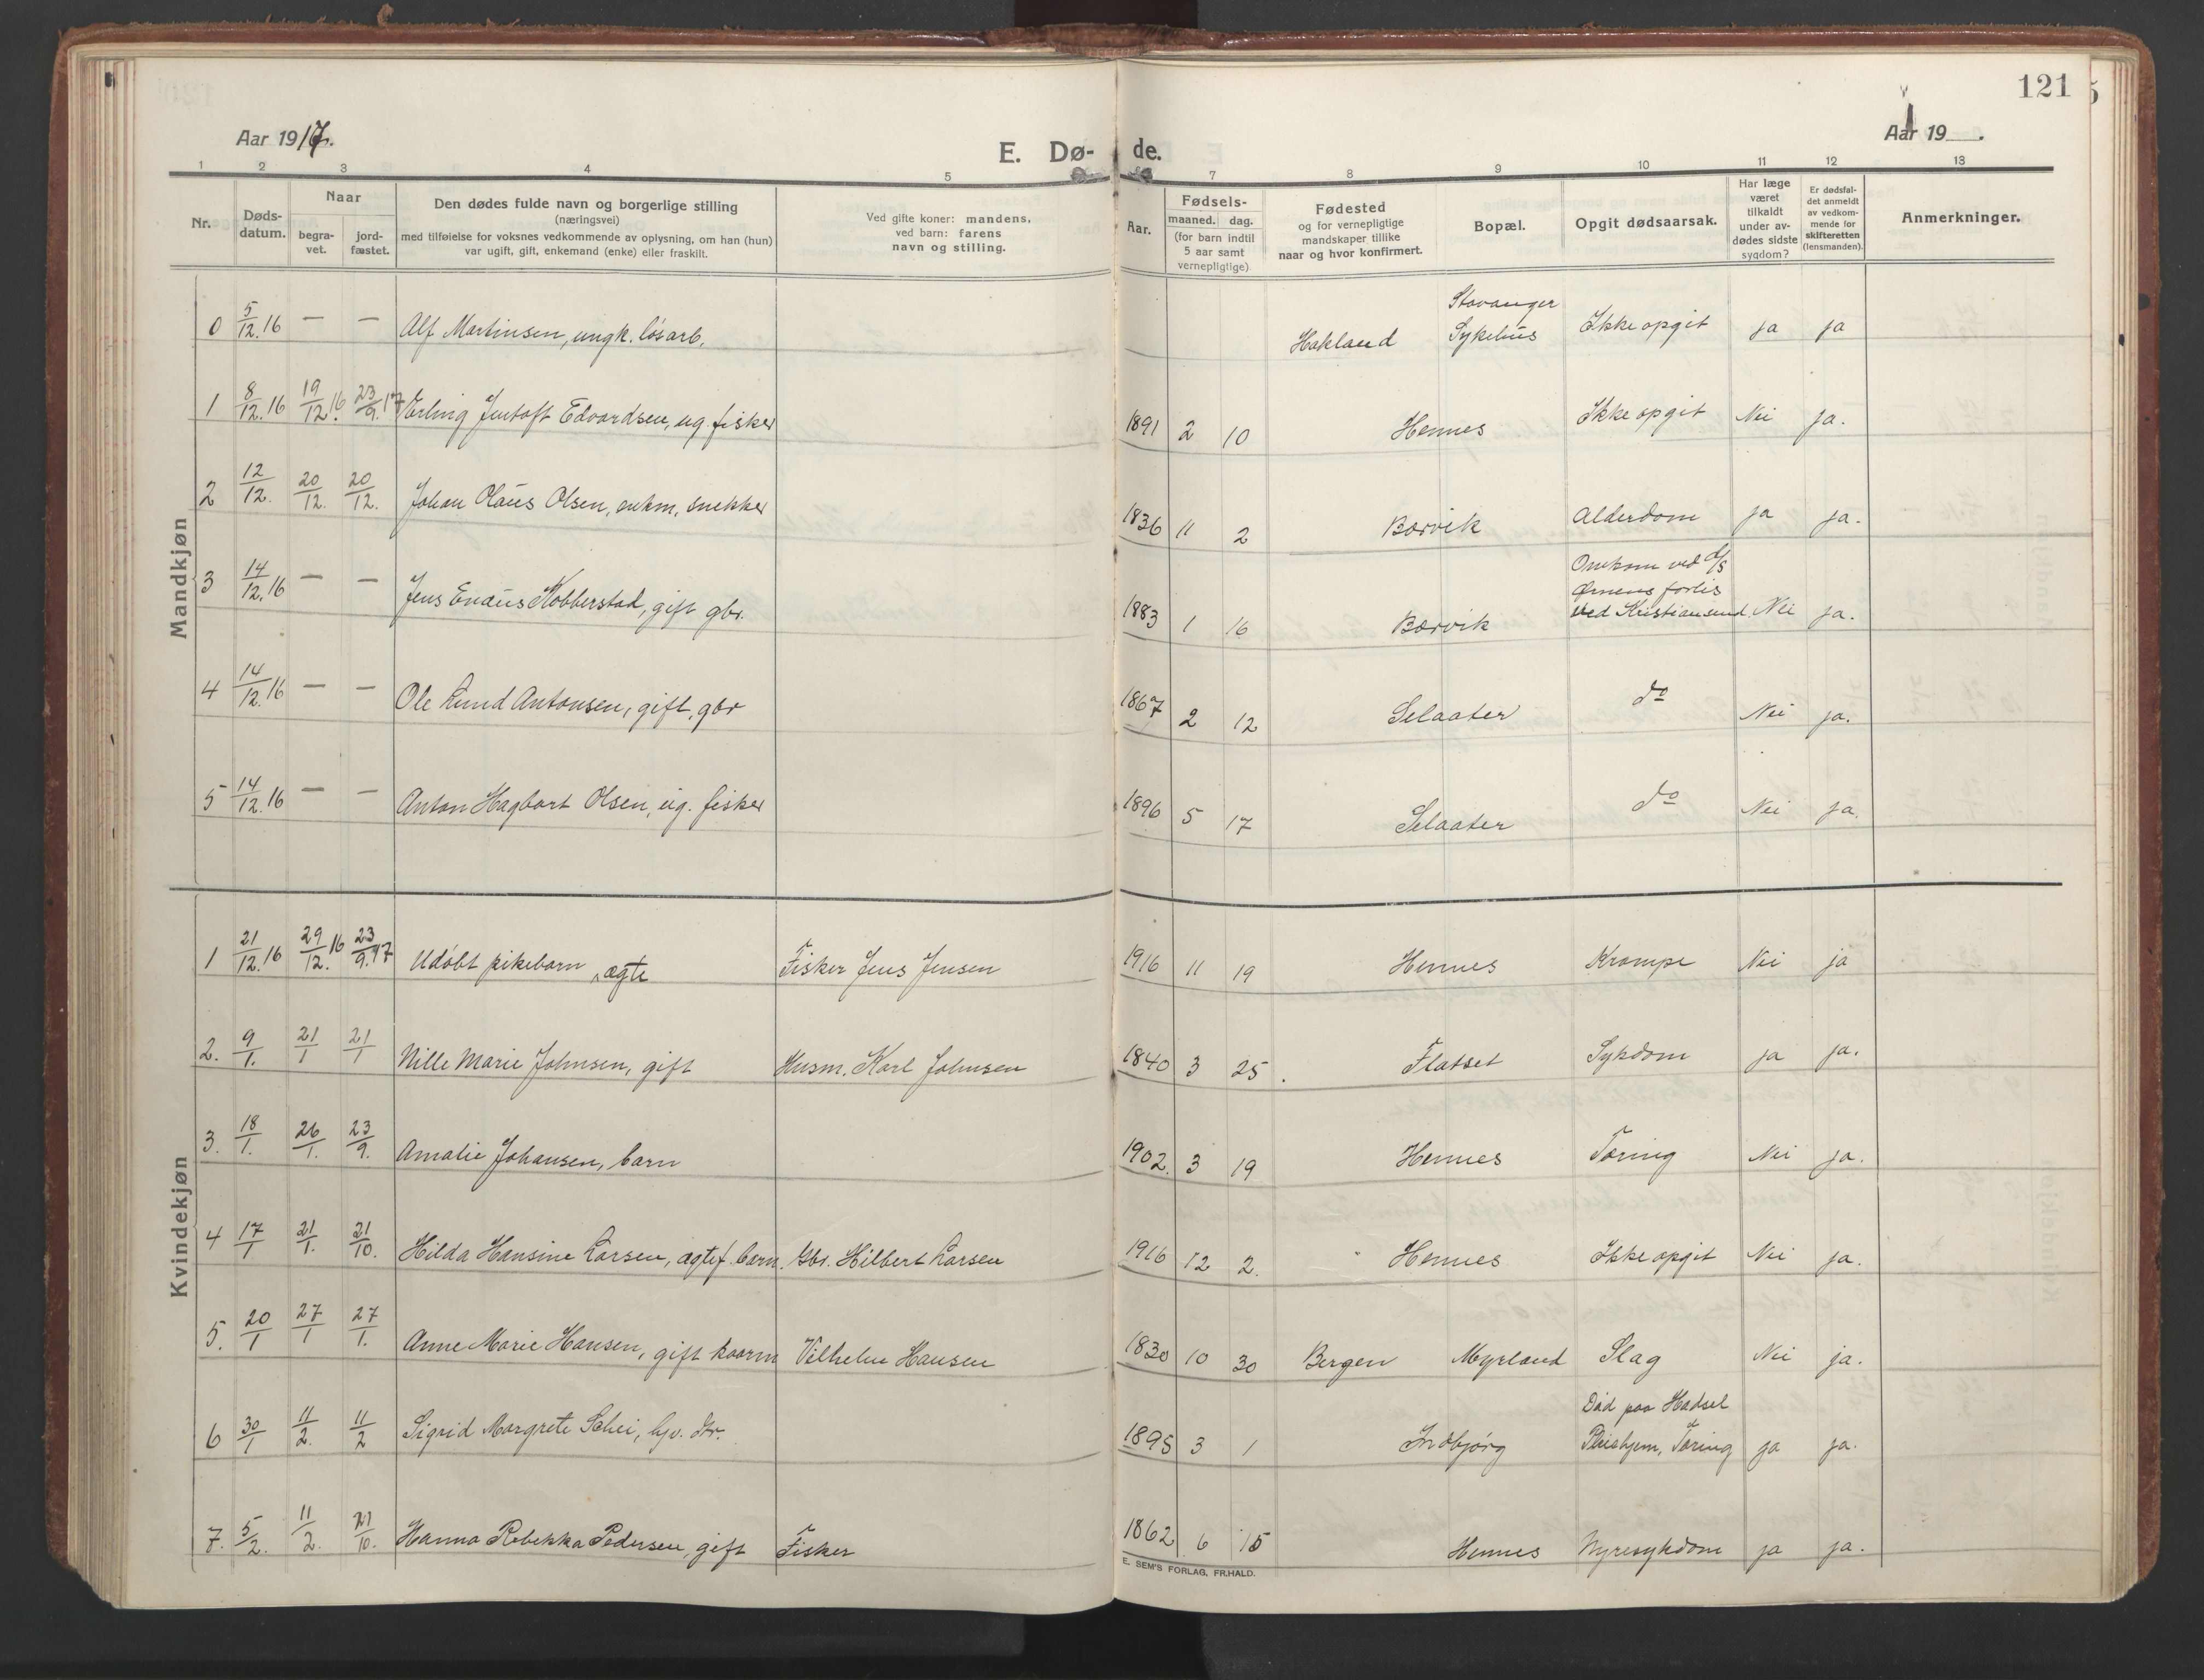 121
Aar 1917.
Aar 19 .
E. Dø-
de.
1 2 3 4 5 7 8 9 10 11 12 13
Nr.
Døds-
datum.
Naar
begra-
vet.
jord-
fæstet.
Den dødes fulde navn og borgerlige stilling
(næringsvei)
med tilføielse for voksnes vedkommende av oplysning, om han (hun)
var ugift, gift, enkemand (enke) eller fraskilt.
Ved gifte koner: mandens,
ved barn: farens
navn og stilling.
Aar.
Fødsels-
maaned. dag.
(for barn indtil
5 aar samt
vernepligtige)
Fødested
og for vernepligtige
mandskaper tillike
naar og hvor konfirmert.
Bopæl.
Opgit dødsaarsak.
Har læge
været
tilkaldt
under av-
dødes sidste
sygdom?
Er dødsfal-
det anmeldt
av vedkom-
mende for
skifteretten
(lensmanden).
Anmerkninger.
Mandkjøn
0 5/12.16 — — Alf Martinsen, ungk. løsarb. Hakland Stavanger Sykehus Ikke opgit ja ja
1 8/12.16 19/12.16 23/9.17 Erling Jentoft Edvardsen, ug. fisker 1891 2 10 Hennes Ikke opgit Nei ja.
2 12/12. 20/12. 20/12. Johan Olaus Olsen, enkm. snekker 1836 11 2 Børvik Alderdom ja ja.
3 14/12.16 — — Jens Enaus Kobberstad, gift gbr. 1883 1 16 Børvik Omkom ved D/S Ørnens forlis ved Kristiansund. Nei ja.
4 14/12.16 — — Ole Lund Antonsen, gift, gbr 1867 2 12 Selaater do Nei ja.
5 14/12.16 — — Anton Hagbart Olsen, ug. fisker 1896 5 17 Selaater do Nei ja.
Kvindekjøn
1 21/12.16 29/12.16 23/9.17 Udøbt pikebarn, ægte Fisker Jens Jensen 1916 11 19 Hennes Krampe Nei ja
2. 9/1. 21/1 21/1 Nille Marie Johnsen, gift Husm. Karl Johnsen 1840 3 25. Flatset Sykdom ja ja.
3. 18/1. 26/1. 23/9. Amalie Johansen, barn 1902. 3 19 Hennes Tæring Nei ja.
4 17/1 21/1. 21/10. Hilda Hansine Larsen, ægtef. barn. Gbr. Hilbert Larsen 1916 12 2. Hennes Ikke opgit Nei ja.
5. 20/1 27/1 27/1. Anne Marie Hansen, gift kaarm Vilhelm Hansen 1830 10 30 Bergen Myrland Slag Nei ja.
6 30/1 11/2. 11/2 Sigrid Margrete Schei, hjv. dtr. 1895 3 1 Indbjørg Død paa Hadsel Pleiehjem, Tæring ja ja.
7. 5/2. 11/2. 21/10. Hanna Rebekka Pedersen, gift Fisker 1862 6 15 Hennes Nyresykdom ja ja.
E. SEM'S FORLAG, FR.HALD.